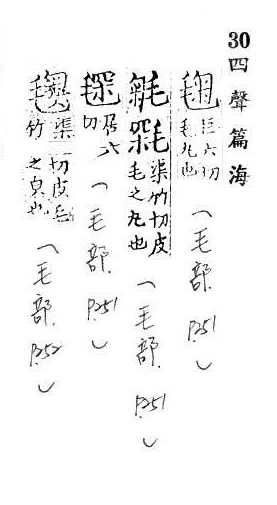 30 四聲篇海
毱 巨六切毛丸也（毛部 P251）
渠竹切皮毛之丸也（毛部 P251）
居六切（毛部 P251）
渠竹切皮毛之皃也（毛部 P252）